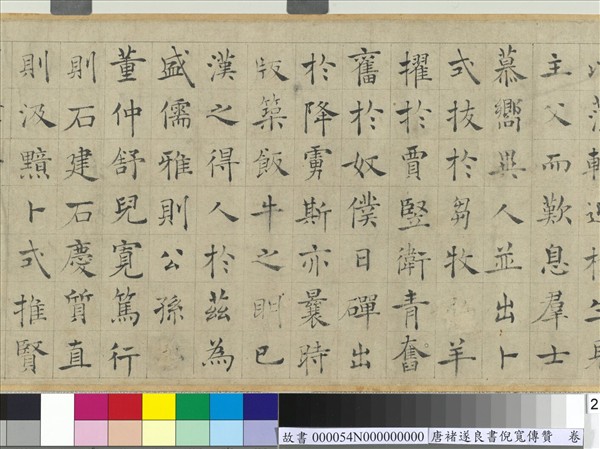 以蒲輪迎枚生見
主父而歎息羣士
慕嚮異人並出卜
式拔於芻牧弘羊
擢於賈豎衛青奮
奮於奴僕日磾出
於降虜斯亦曩時
版築飯牛之明已
漢之得人於茲為
盛儒雅則公孫弘
董仲舒兒寬篤行
則石建石慶質直
則汲黯卜式推賢
故書 000054N000000000 唐褚遂良書倪寬傳贊 卷
2